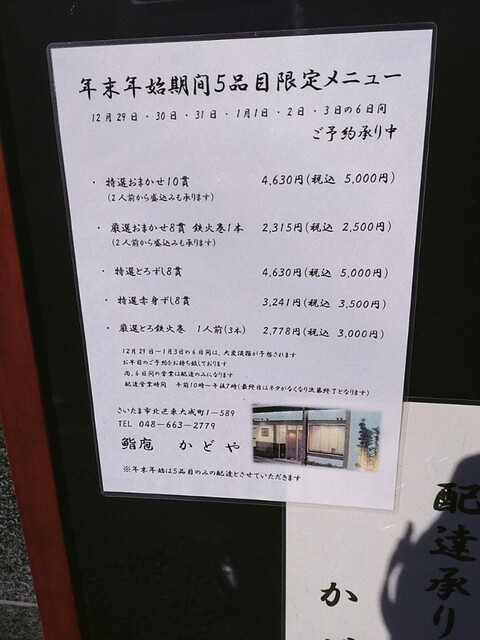 年末年始期間5品目限定メニュー
12月29日・30日・31日・1月1日・2日・3日の6日間
ご予約承り中
・特選おまかせ10貫 4,630円(税込 5,000円)
(2人前から盛込みも承ります)
・厳選おまかせ8貫 鉄火巻1本 2,315円(税込 2,500円)
(2人前から盛込みも承ります)
・特選とろずし8貫 4,630円(税込 5,000円)
・特選赤身ずし8貫 3,241円(税込 3,500円)
・厳選とろ鉄火巻 1人前(3本) 2,778円(税込 3,000円)
12月29日～1月3日の6日間は、大変混雑が予想されます
お早目のご予約をお待ち致しております
尚、6日間の営業は配達のみになります
配達営業時間 午前10時～午後7時(最終日はネタがなくなり次第終了となります)
さいたま市北区東大成町1-589
TEL 048-663-2779
鮨庵 かどや
※年末年始は5品目のみの配達とさせていただきます
配達承り
か